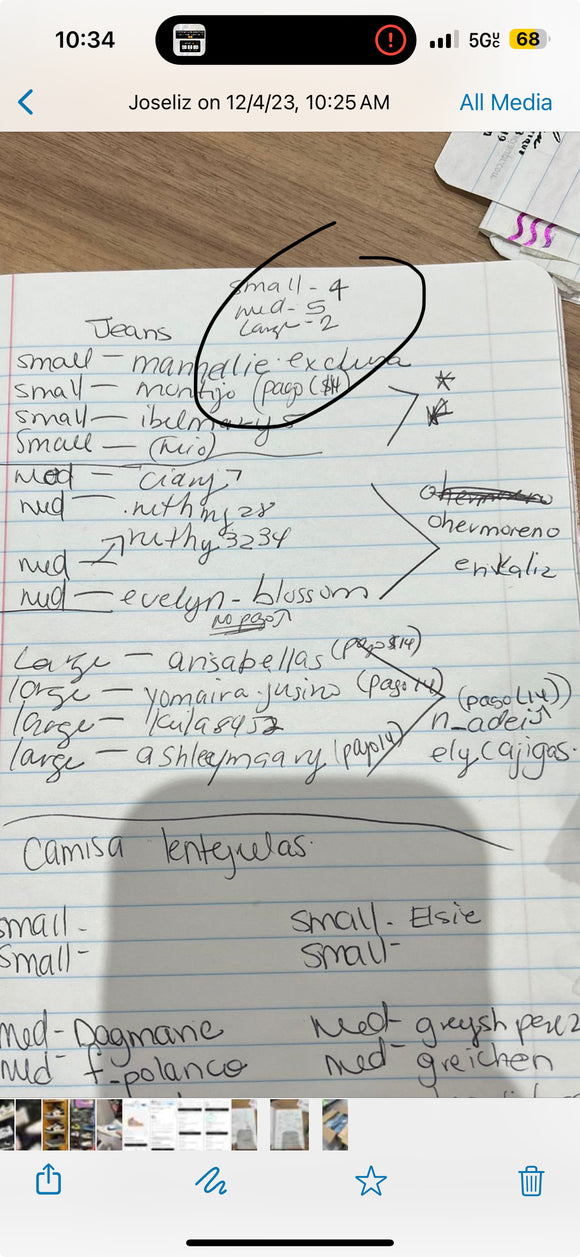 10:34
5G
68
Joseliz on 12/4/23, 10:25 AM
All Media
small - 4
med - 5
Large - 2
Jeans
small - mannellie.exclusa
small - montijo (pago ($14)
small - ibelmarys
Small - (mio)
med -
med - ruthmg28
med - ruthy3234
med - evelyn - blossom
no pago
ohermoreno
erikaliz
Large - arisabellas (pago $14)
large - yomaira.jusino (pago 14)
large - lkula8452
large - ashleymaary (pago 14)
(pago (14))
n_adeis
ely cajigas.
Camisa lentejuelas.
small - small - Elsie
Small - small -
med - Dagmarie med - greysh perez
med - f-polanco med - greichen